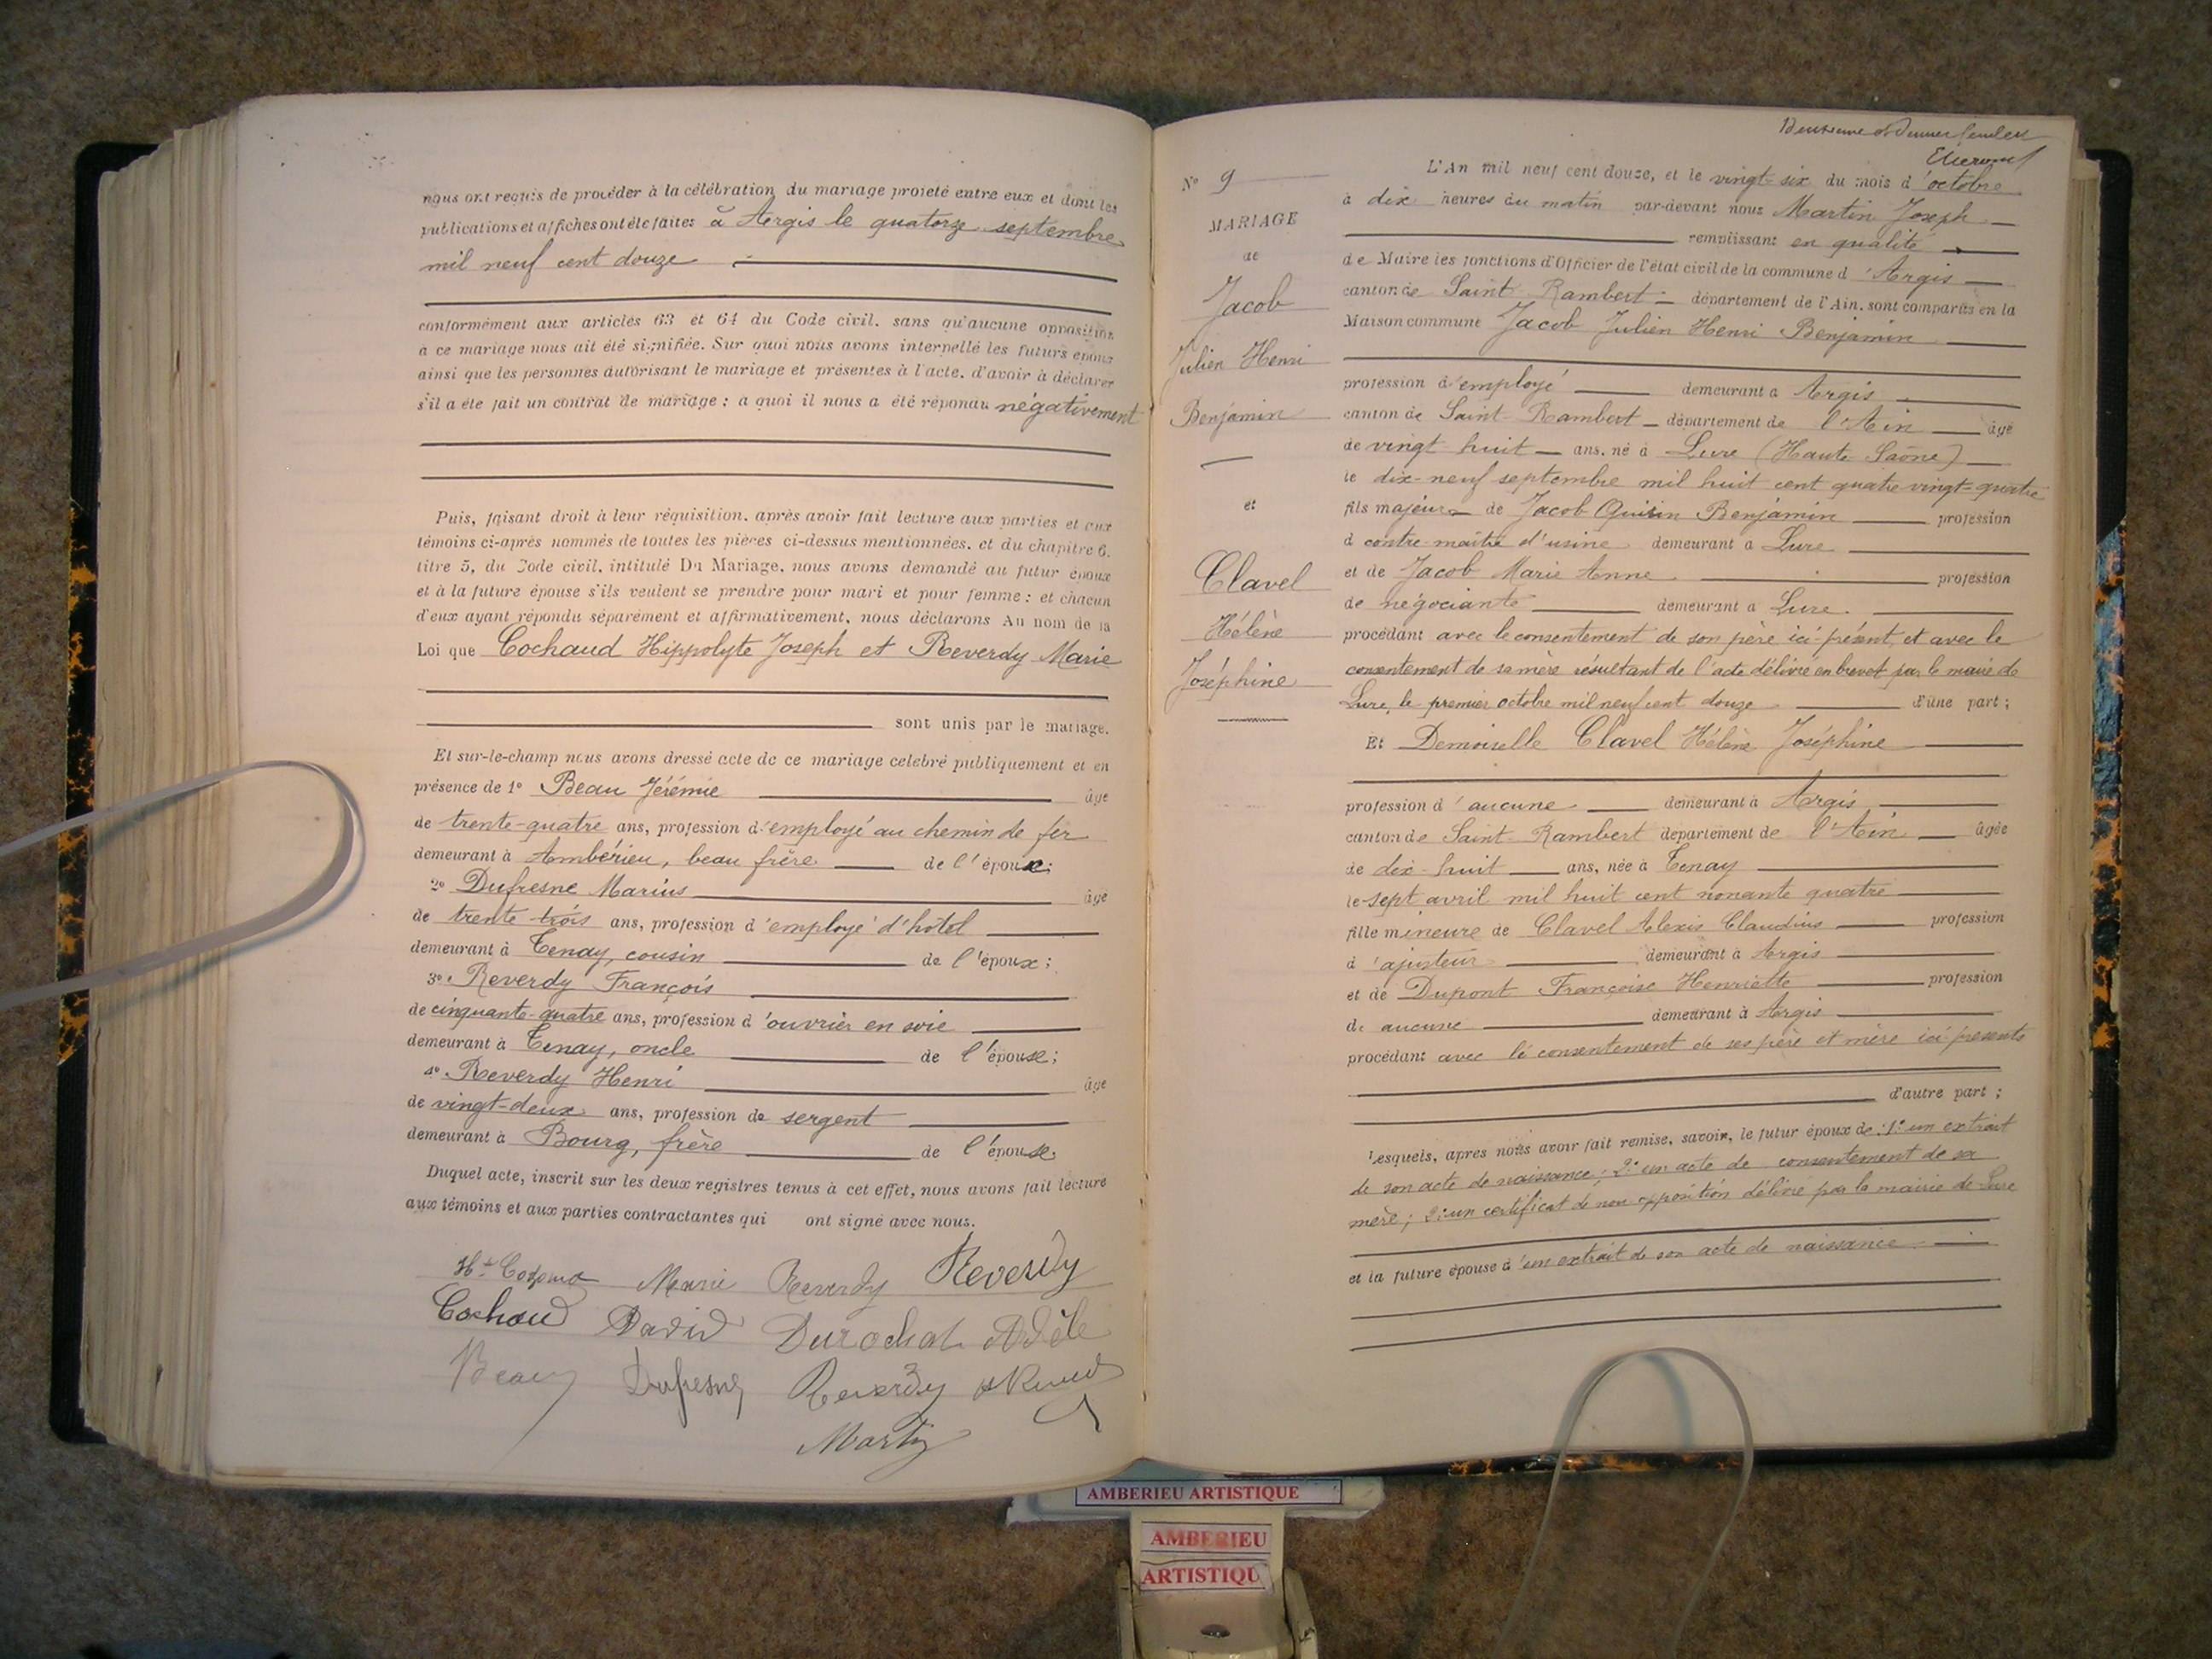 nous ont requis de procéder à la célébration du mariage projeté entre eux et dont les
publications et affiches ont été faites à Argis le quatorze septembre
mil neuf cent douze
conformément aux articles 63 et 64 du Code civil, sans qu'aucune opposition
à ce mariage nous ait été signifiée. Sur quoi nous avons interpellé les futurs époux
ainsi que les personnes autorisant le mariage et présentes à l'acte, d'avoir à déclarer
s'il a été fait un contrat de mariage ; a quoi il nous a été répondu négativement
Puis, faisant droit à leur réquisition, après avoir fait lecture aux parties et aux
témoins ci-après nommés de toutes les pièces ci-dessus mentionnées, et du chapitre 6,
titre 5, du Code civil, intitulé Du Mariage, nous avons demandé au futur époux
et à la future épouse s'ils veulent se prendre pour mari et pour femme ; et chacun
d'eux ayant répondu séparément et affirmativement, nous déclarons Au nom de la
Loi que Cochaud Hippolyte Joseph et Reverdy Marie
sont unis par le mariage.
Et sur-le-champ nous avons dressé acte de ce mariage célébré publiquement et en
présence de 1º Beau Jérémie âgé
de trente-quatre ans, profession d'employé au chemin de fer
demeurant à Ambérieu, beau frère de l'époux;
2º Dufresne Marius âgé
de trente trois ans, profession d'employé d'hôtel
demeurant à Tenay, cousin de l'époux;
3º Reverdy François
de cinquante-quatre ans, profession d'ouvrier en soie
demeurant à Tenay, oncle de l'épouse;
4º Reverdy Henri âgé
de vingt-deux ans, profession de sergent
demeurant à Bourg, frère de l'épouse.
Duquel acte, inscrit sur les deux registres tenus à cet effet, nous avons fait lecture
aux témoins et aux parties contractantes qui ont signé avec nous.
Marie Reverdy Reverdy
Cochaud David Durochat Adèle
Beau Dufresne Reverdy
Martin
Nº 9
MARIAGE
de
Jacob
Julien Henri
Benjamin
et
Clavel
Hélène
Joséphine
L'An mil neuf cent douze, et le vingt-six du mois d'octobre
à dix heures du matin par-devant nous Martin Joseph
remplissant en qualité
de Maire les fonctions d'Officier de l'état civil de la commune d'Argis
canton de Saint Rambert département de l'Ain, sont comparus en la
Maison commune Jacob Julien Henri Benjamin
profession d'employé demeurant à Argis
canton de Saint-Rambert département de l'Ain âgé
de vingt huit ans, né à Lure (Haute Saône)
le dix-neuf septembre mil huit cent quatre-vingt-quatre
fils majeur de Jacob Quirin Benjamin profession
d contre-maître d'usine demeurant à Lure
et de Jacob Marie Anne profession
de négociante demeurant à Lure.
procédant avec le consentement de son père ici présent, et avec le
consentement de sa mère résultant de l'acte délivré en brevet par le maire de
Lure, le premier octobre mil neuf cent douze d'une part ;
Et Demoiselle Clavel Hélène Joséphine
profession d'aucune demeurant à Argis
canton de Saint Rambert département de l'Ain âgée
de dix-huit ans, née à Tenay
le sept avril mil huit cent nonante quatre
fille mineure de Clavel Alexis Claudius profession
d'ajusteur demeurant à Argis
et de Dupont Françoise Henriette profession
de aucune demeurant à Argis
procédant avec le consentement de ses père et mère ici présents
d'autre part ;
Lesquels, après nous avoir fait remise, savoir, le futur époux de : 1º un extrait
de son acte de naissance ; 2º un acte de consentement de sa
mère ; 3º un certificat de non opposition délivré par la mairie de Lure
et la future épouse d'un extrait de son acte de naissance
AMBERIEU ARTISTIQUE
AMBERIEU
ARTISTIQU